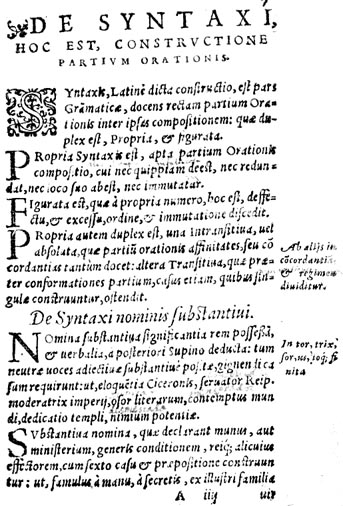 DE SYNTAXI,
HOC EST, CONSTRVCTIONE
PARTIVM ORATIONIS.
SYntaxis, Latinè dicta constructio, est pars
Grãmaticæ, docens rectam partium Ora-
tionis inter ipsas compositionem: quæ du-
plex est, Propria, & figurata.
PRopria Syntaxis est, apta partium Orationis
compositio, cui nec quippiam deest, nec redun-
dat, nec loco suo abest, nec immutatur.
FIgurata est, quæ à propria numero, hoc est, deffe-
ctu, & excessu, ordine, & immutatione discedit.
PRopria autem duplex est, una Intransitiua, uel
absolata, quæ partiũ orationis affinitates, seu cõ
cordantias tantùm docet: altera Transitiua, quæ præ-
ter conformationes partium, casus etiam, quibus sin-
gulæ construuntur, ostendit.
Ab alijs in
cõcordantiã
& regimen
diuiditur.
De Syntaxi nominis substantiui.
NOmina substantiua significantia rem possessã,
& uerbalia, a posteriori Supino deducta: tum
neutræ uoces adiectiuæ substantiuè positæ, gignendi ca
sum requirunt: ut, eloquẽtia Ciceronis, seruator Reip.
moderatrix imperij, osor literarum, contemptus mun
di, dedicatio templi, nimium potentiæ.
In tor, trix,
sor, us, io,
nita
SVbstantiua nomina, quæ declarant munus, aut
ministerium, generis conditionem, reiq; alicuius
effectorem, cum sexto casu & præpositione construun
tur: ut, famulus à manu, à secretis, ex illustri familia
A iij uir